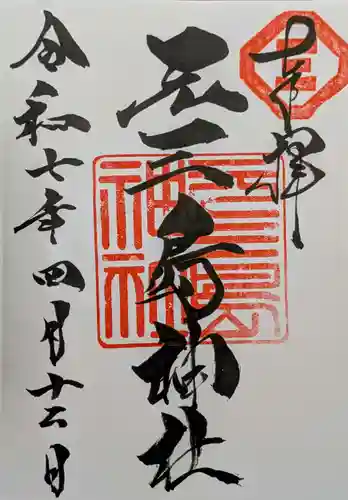 奉拝
三
元三島神社
三島
神社
令和七年四月十六日